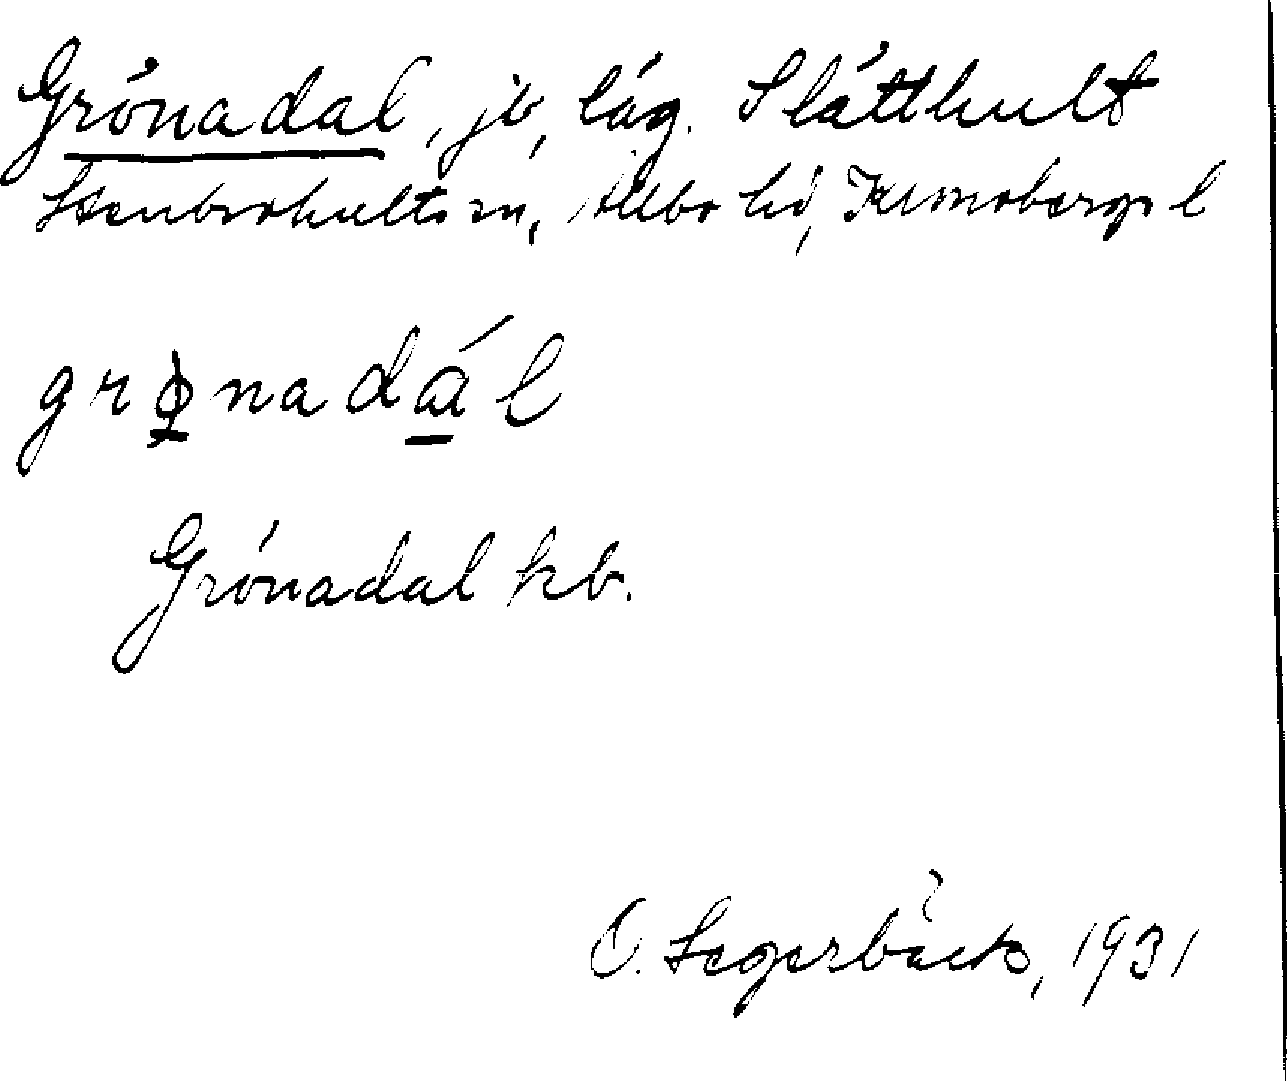 Grönadal, jb, läg. Slätthult
Stenbrohults sn, Allbo hd, Kronobergs l
grønadál
Grönadal kb.
O. Segerbäck, 1931